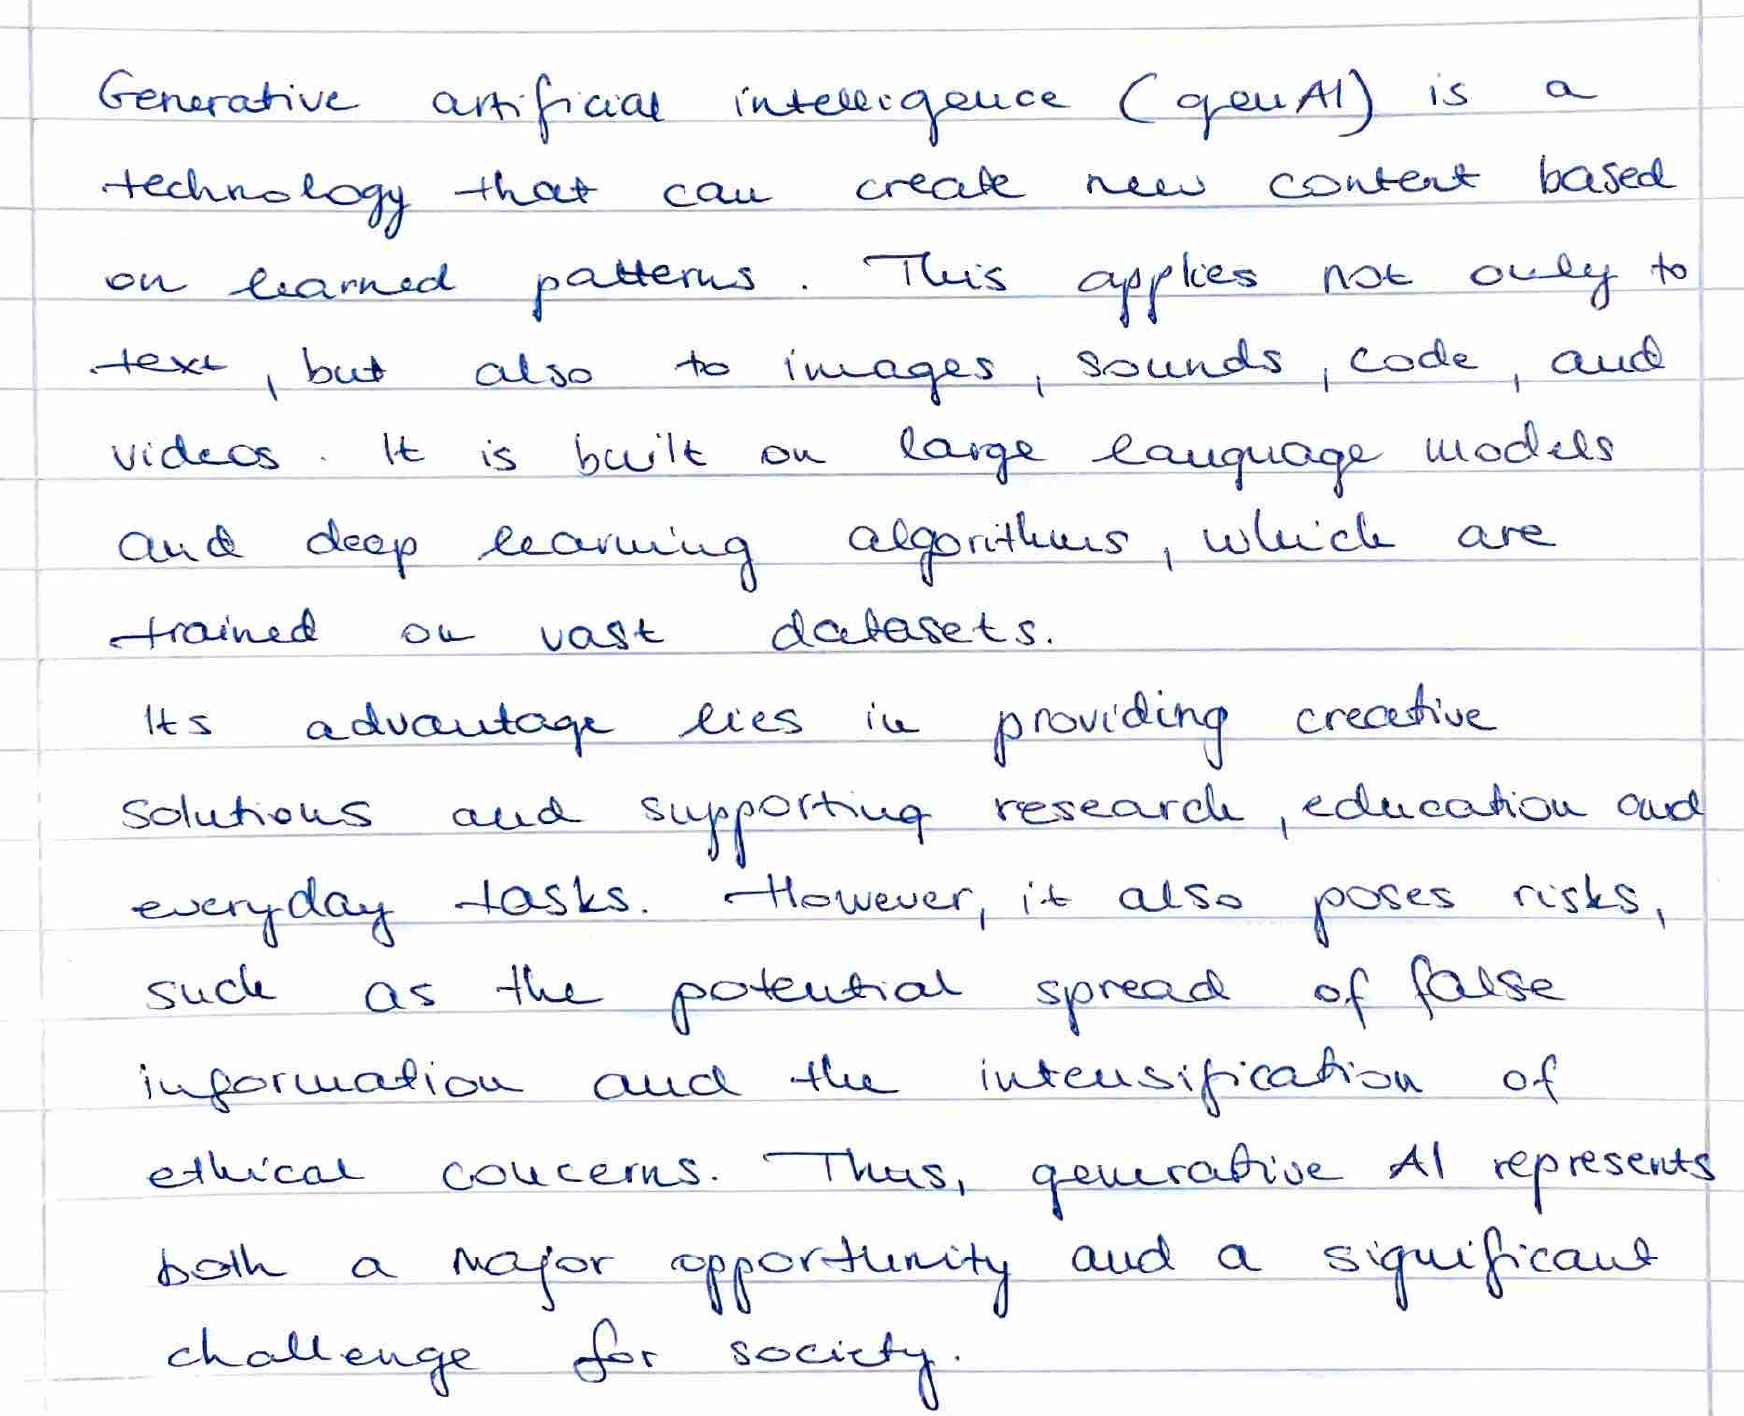 Generative artificial intelligence (genAI) is a
technology that can create new content based
on learned patterns. This applies not only to
text, but also to images, sounds, code, and
videos. It is built on large language models
and deep learning algorithms, which are
trained on vast datasets.
Its advantage lies in providing creative
solutions and supporting research, education and
everyday tasks. However, it also poses risks,
such as the potential spread of false
information and the intensification of
ethical concerns. Thus, generative AI represents
both a major opportunity and a significant
challenge for society.